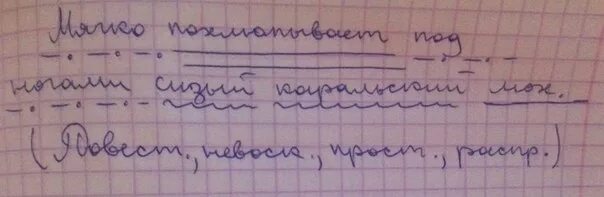 Мягко похлюпывает под
ногами сизый каральский мох.
(Повест., невоск., прост., распр.)